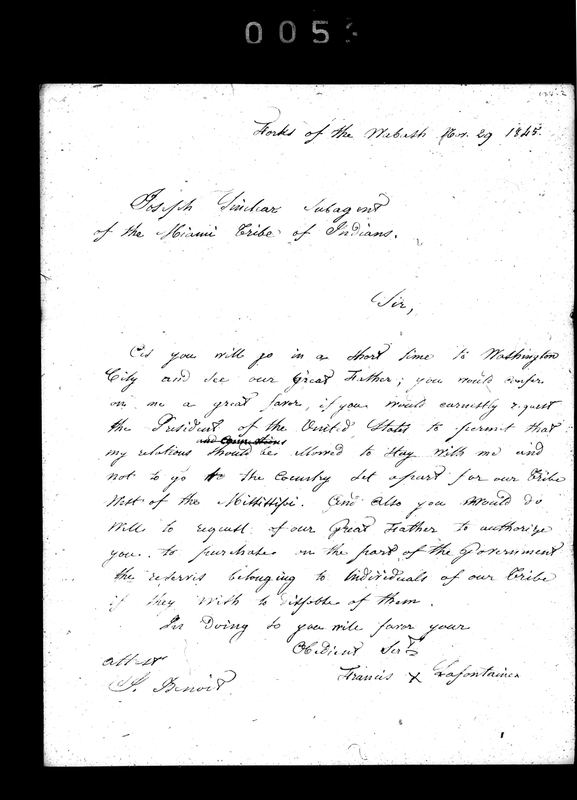 005
Forks of the Wabash Nov. 29 1845.
Joseph Sinclear Subagent
of the Miami Tribe of Indians.
Sir,
As you will go in a short time to Washington
City and see our Great Father; you would confer
on me a great favor, if you would earnestly request
the President of the United States to permit that
and connections
my relations should be allowed to stay with me and
not to go to the Country set apart for our Tribe
West of the Mississipi. And also you would do
well to request of our Great Father to authorize
you to purchase on the part of the Government
the reserves belonging to individuals of our Tribe
if they wish to dispose of them.
In Doing so you will favor your
Obedient Servt
attest
Francis X Lafontaine
S. Benoit